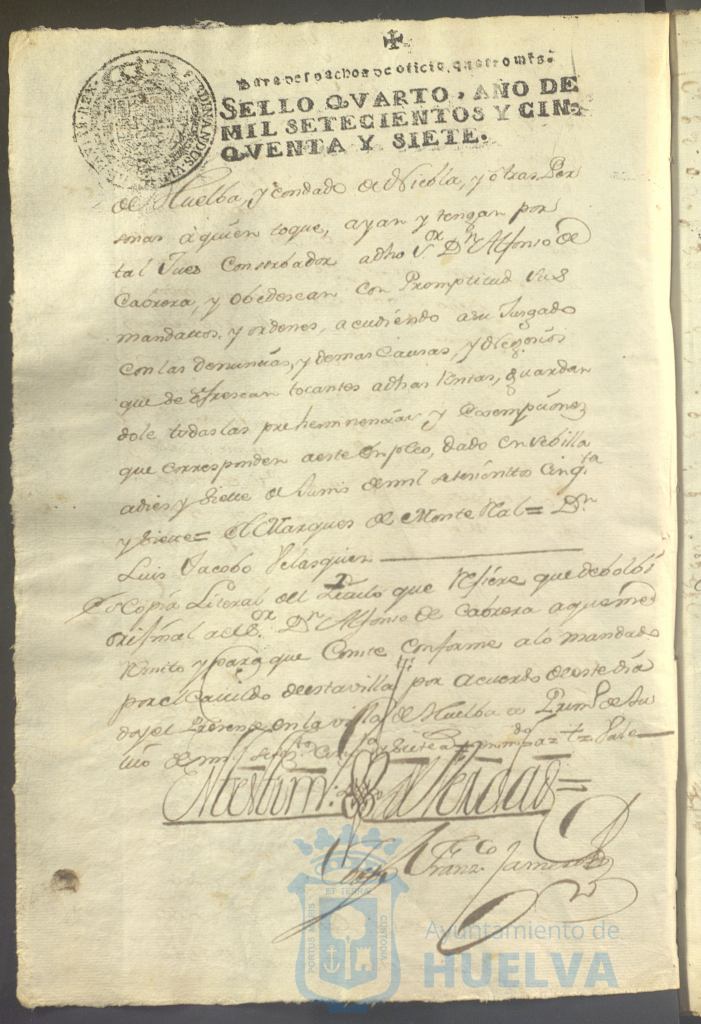 Para despachos de oficio, quatro mrs.
SELLO QVARTO, AÑO DE
MIL SETECIENTOS Y CIN-
QVENTA Y SIETE.
de Huelba, y condado de Niebla, y otras Per
sonas a quien toque, ayan y tengan por
tal Jues Conserbador adho Sr. Dn Alfonso de
Cabrera, y obedescan con Promptitud sus
mandatos, y ordenes, acudiendo asu Jusgado
con las denuncias, y demas Causas, y Negosios
que se ofrescan tocantes adhas Rentas, guardan
dole todas las prehemnencias y exsempciones
que corresponden aeste Empleo, dado en Sebilla
adies y siete de Junio de mil setecientos Cinqta
y siete = El Marques de Monte Real = Dn
Luis Jacobo Velasques
Es Copia Literal del Titulo que refiere que debolbi
orijinal al Sr. Dn Alfonso de Cabrera a que me
remito y para que Conste conforme alo mandado
por el Cavildo de esta villa por acuerdo de este dia
doy el Presente en la villa de Huelba a Primo de Ju
lio de mil setetos
En testim.o de Verdad =
Franco
PORTUS MARIS
ET TERRAE
CUSTODIA
Ayuntamiento de
HUELVA